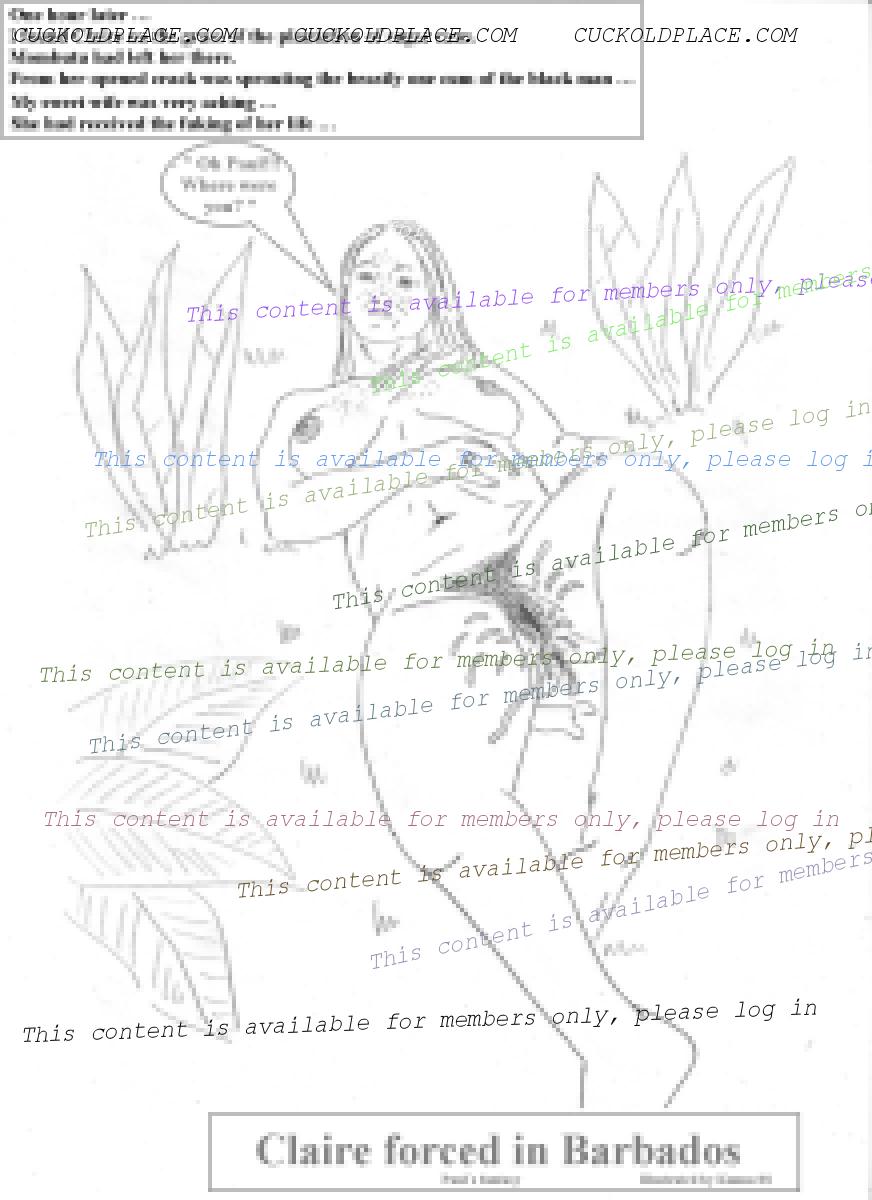 One hour later ...
CUCKOLDPLACE.COM CUCKOLDPLACE.COM CUCKOLDPLACE.COM
had left her there.
From her opened crack was sprouting the cum of the black man ...
My sweet wife was very aching ...
She had received the fuking of her life ...
" Oh Paul!!
Where were
you? "
This content is available for members only, please
This content is available for members
This content is available for members only, please log in
This content is available for members only, please log i
This content is available for members only, please log in
This content is available for members on
This content is available for members only, please log in
This content is available for members only, please log in
This content is available for members only, please log in
This content is available for members only, pl
This content is available for members
This content is available for members only, please log in
Claire forced in Barbados
Paul's fantasy
Illustrated by